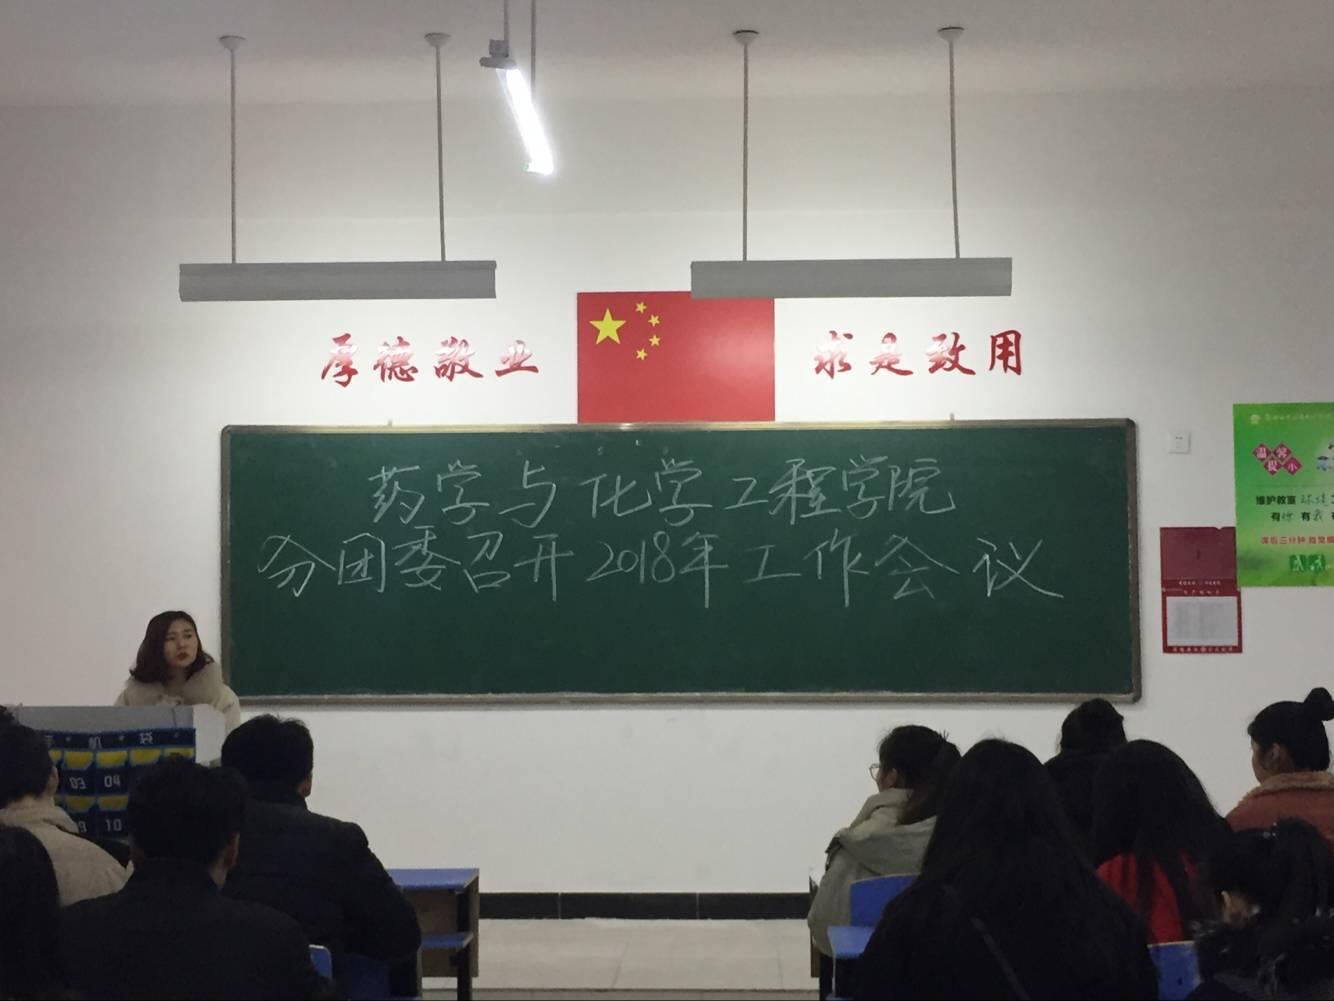 厚德敬业
求是致用
药学与化学工程学院
分团委召开2018年工作会议
温馨提小
维护教室
有你有我
课后三分钟
手机袋
03 04
10